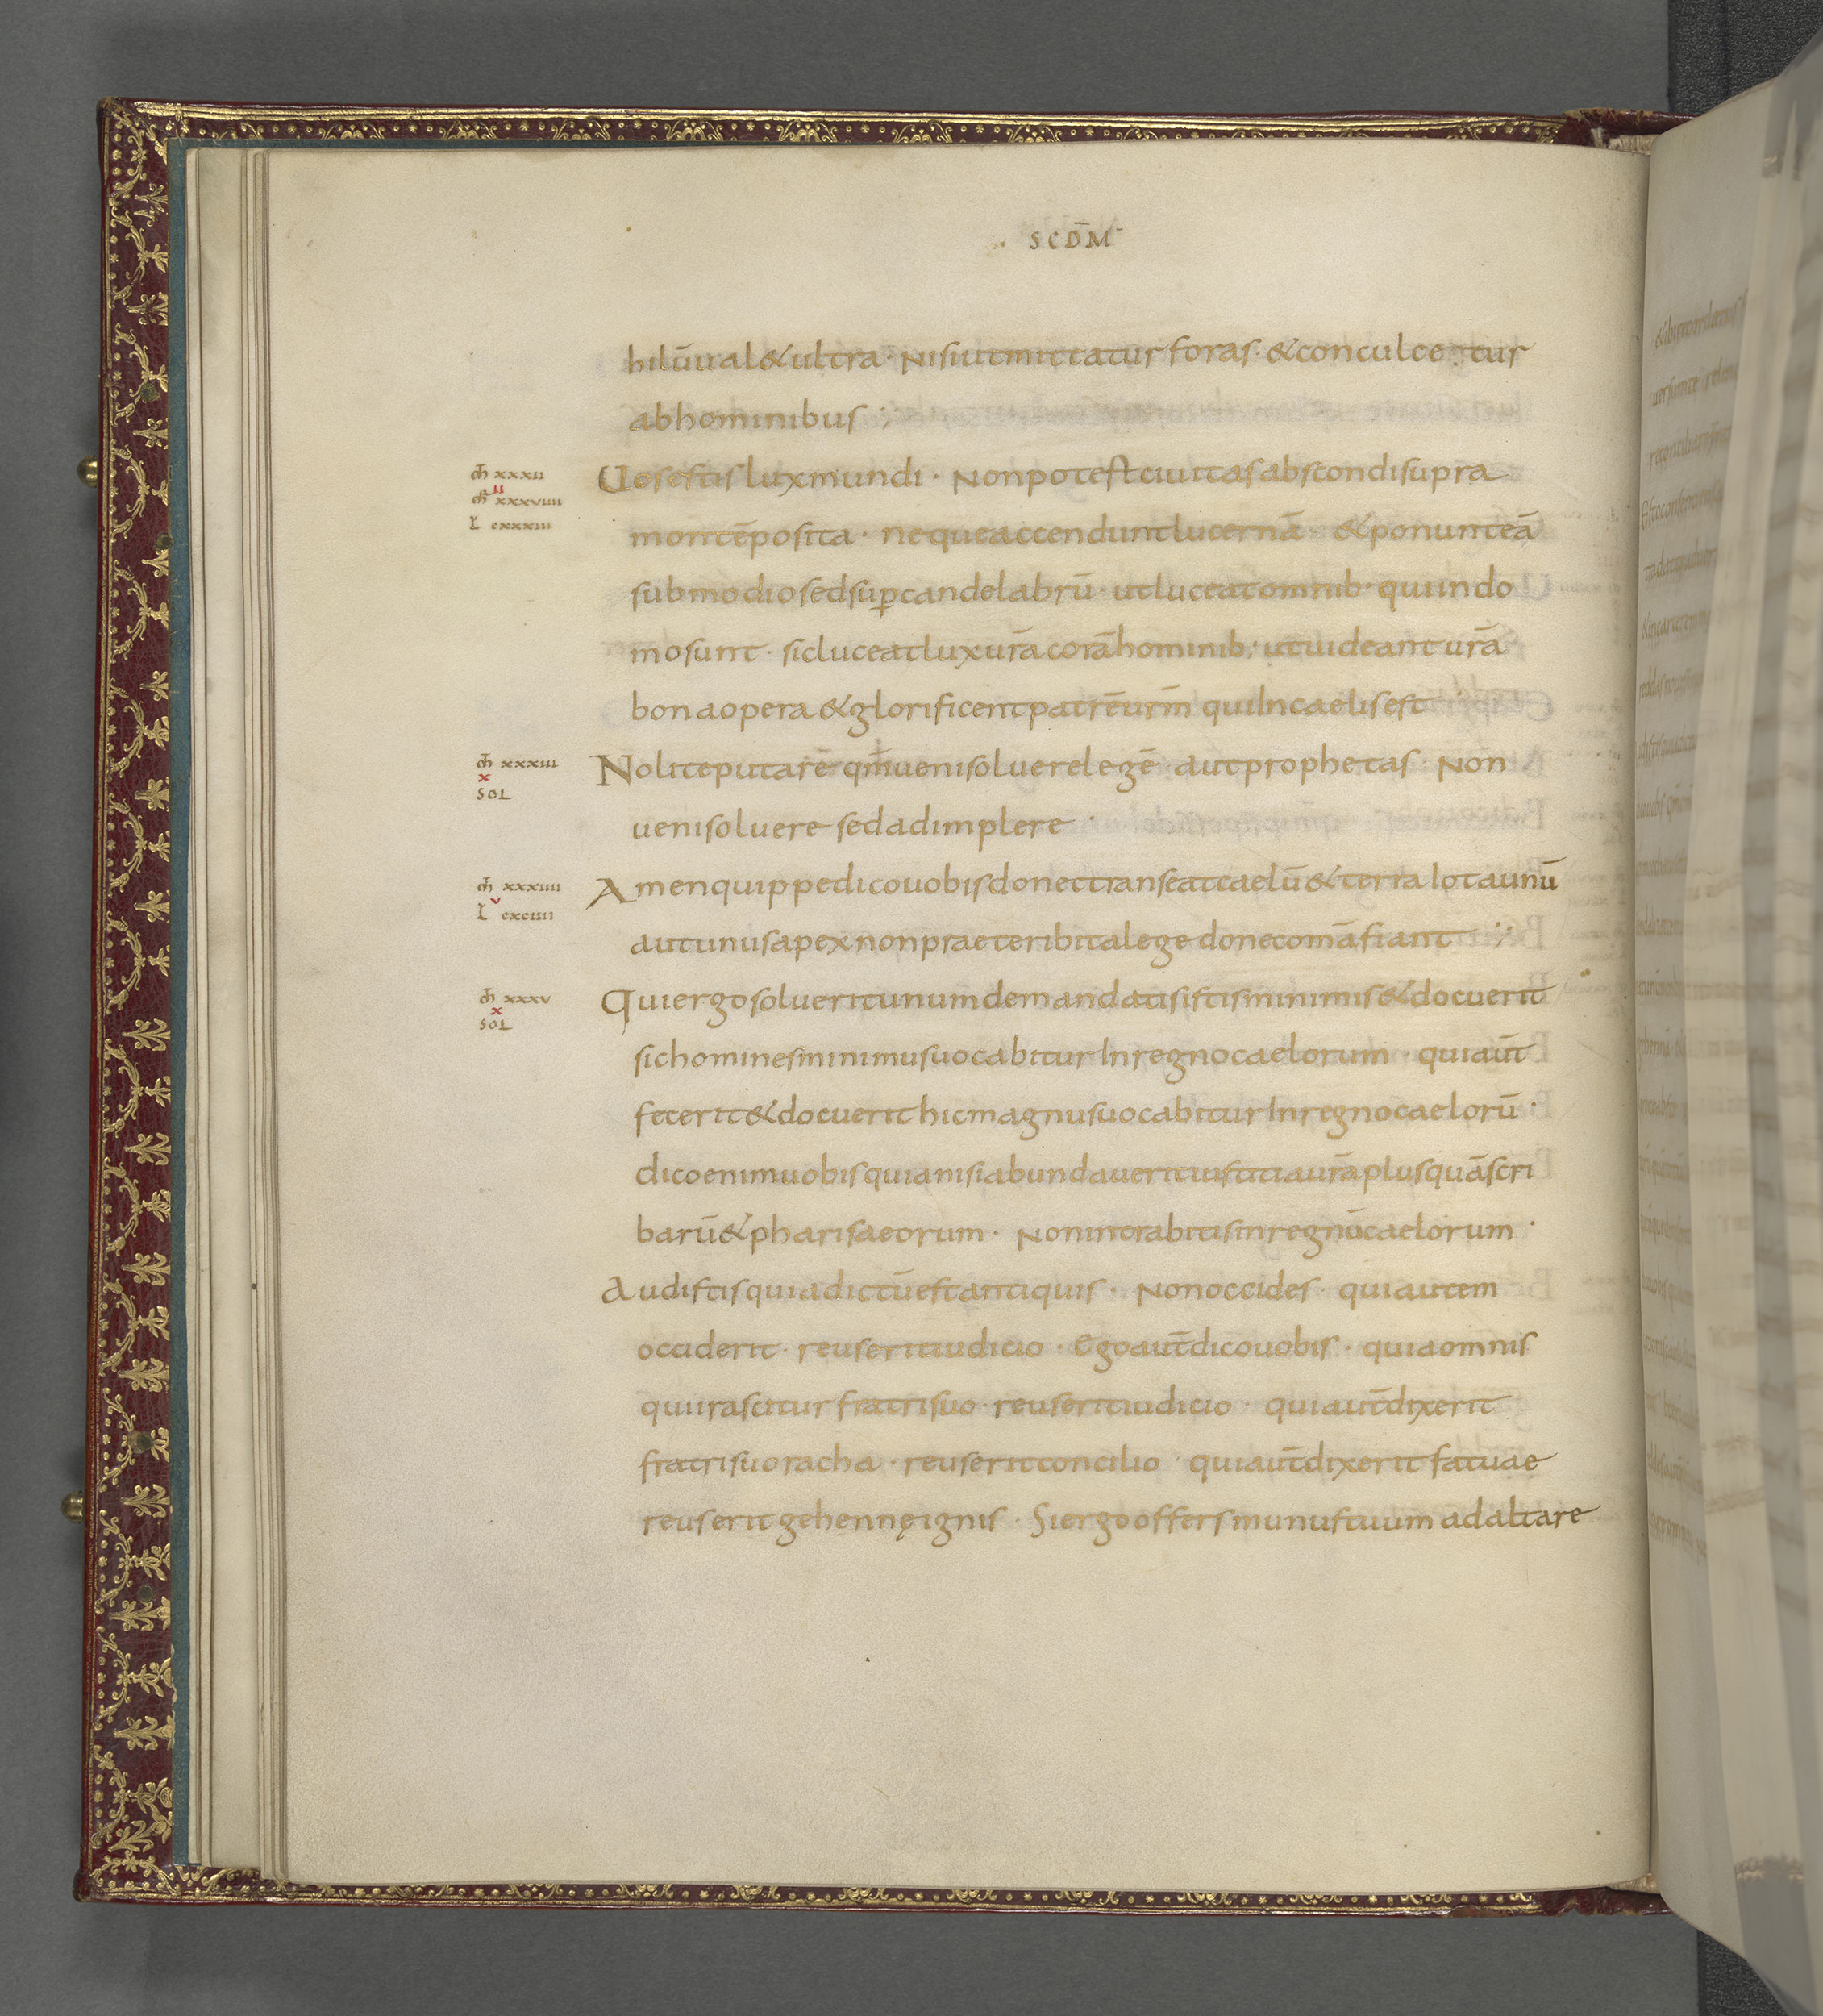 SCD̄M
hilūual&ultra · Nisiutmittatur foras · &conculce tur
abhominibus
m̄ xxxii
m̄r xxxviiii
L cxxxiii
Uosestis luxmundi · Nonpotestciuitasabscondisupra
montēposita · nequeaccenduntlucernā · &ponunteā
submodiosedsuꝑcandelabrū · utluceatomnib · quiindo
mosunt · sicluceatluxur̄acorāhominib; utuideant ur̄a
bonaopera &glorificentpatrēur̄m quiIncaelisest
m̄ xxxiii
x
SOL
Noliteputare qm̄uenisoluerelegē autprophetas · Non
uenisoluere sedadimplere ·
m̄ xxxiiii
v
L cxciiii
Amenquippedicouobisdonectranseatcaelū&terra Iotaunū
autunusapexnonpraeteribitalege donecomāfiant
m̄ xxxv
x
SOL
Quiergosolueritunumdemandatisistisminimis&docuerit
sichominesminimusuocabiturInregnocaelorum · quiaūt
fecerit&docuerit hicmagnusuocabiturInregnocaelorū ·
dicoenimuobisquianisiabundaueritiustitiaur̄aplusquāscri
barū&pharisaeorum · Nonintrabitisinregnūcaelorum ·
Audistisquiadictūestantiquis · Nonoccides · quiautem
occiderit · reuseritiudicio · Egoaūtdicouobis · quiaomnis
quiirascitur fratrisuo · reuseritiudicio · quiaūtdixerit
fratrisuoracha · reuseritconcilio · quiaūtdixerit fatuae
reuserit gehennęignis · Siergooffersmunustuum adaltare